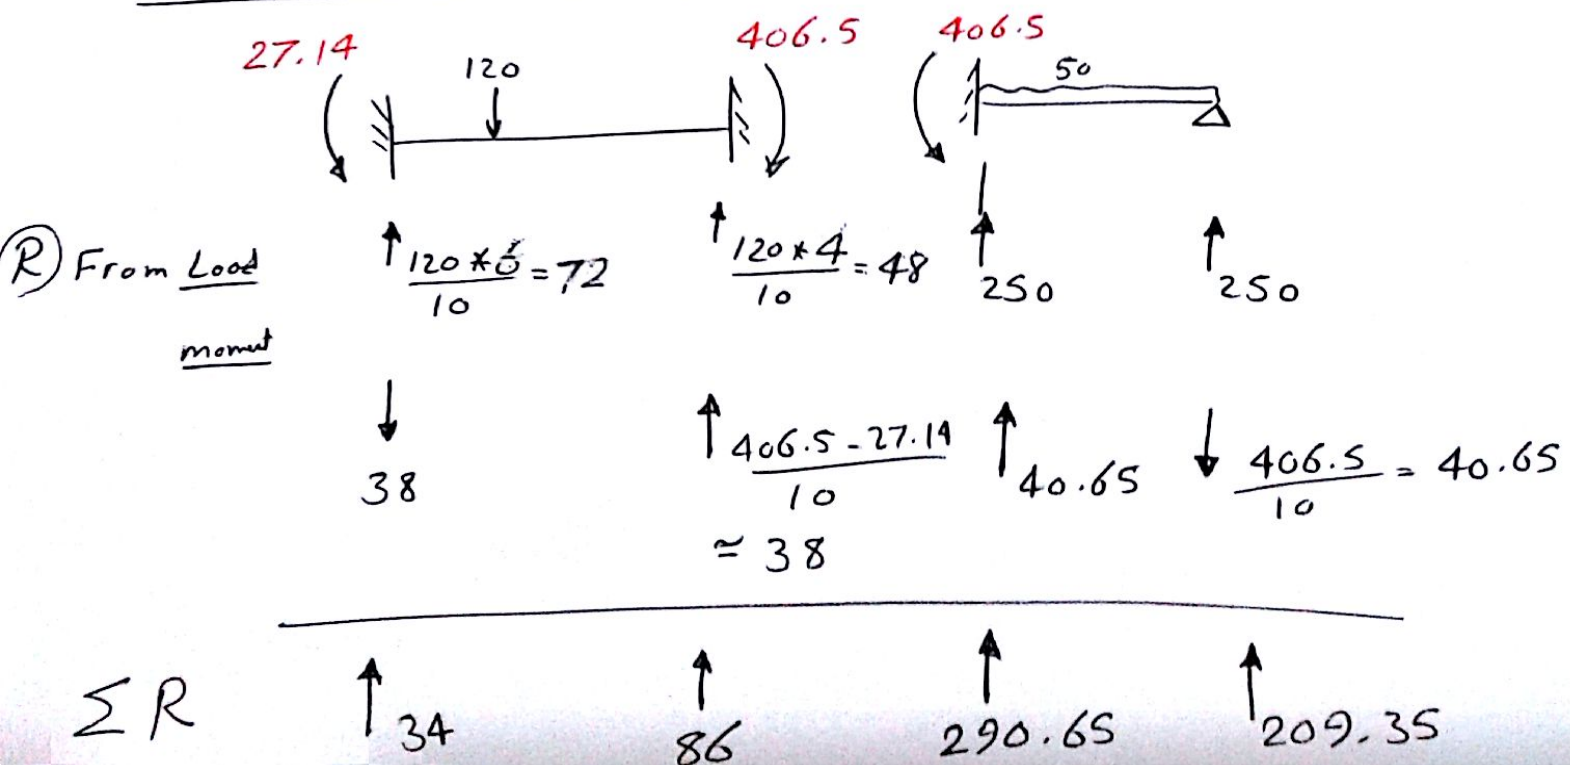 27.14 406.5 406.5
120 50
R From Load 120*6/10 = 72 120*4/10 = 48 250 250
moment
38 406.5-27.14/10 40.65 406.5/10 = 40.65
≃ 38
ΣR 34 86 290.65 209.35